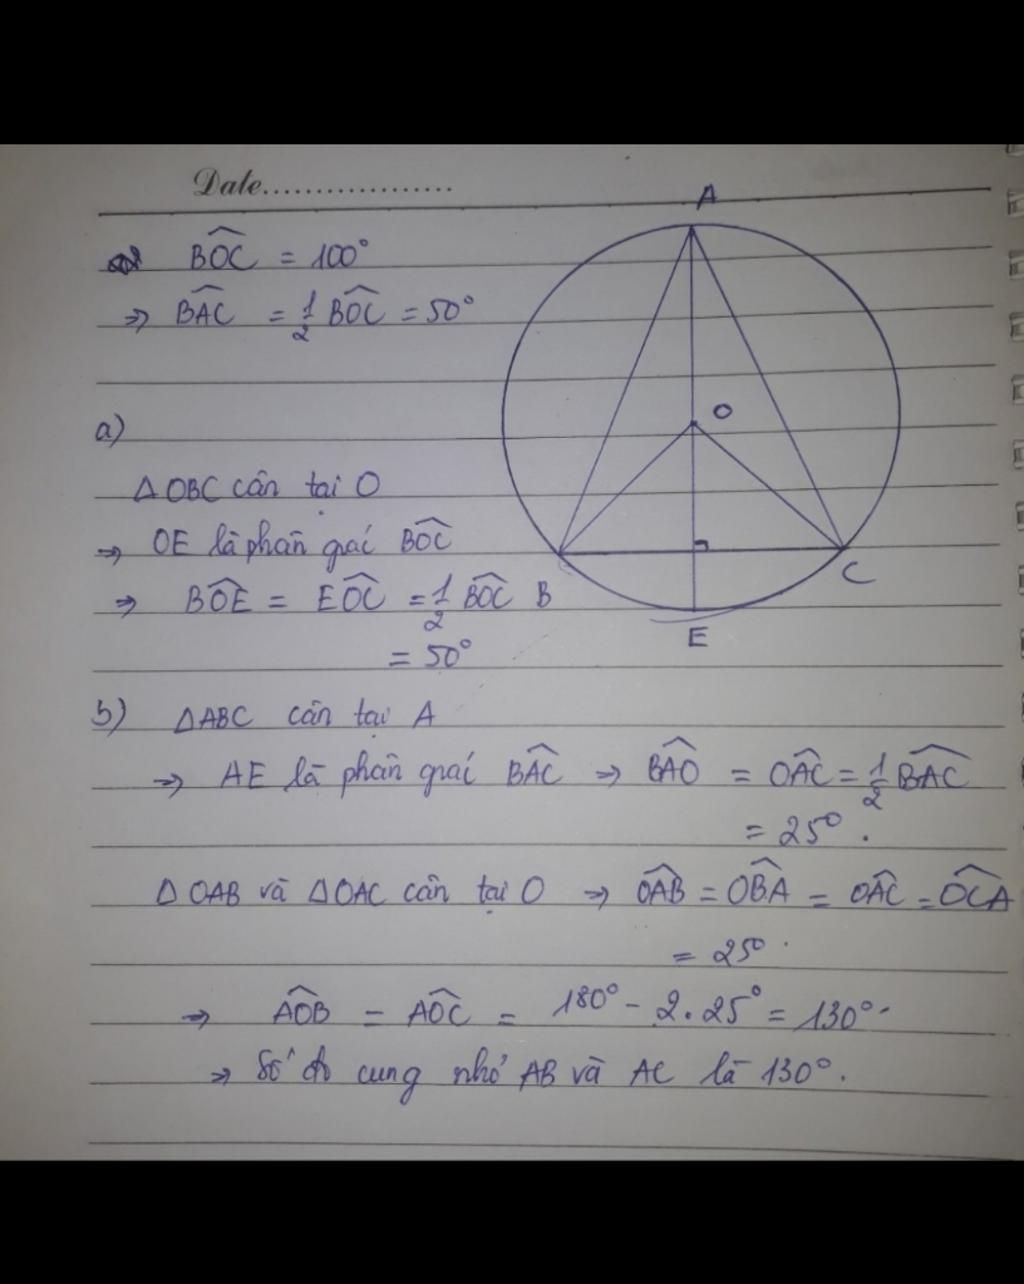 Date..................
A
BÔC = 100°
⇒ BAC = 1/2 BOC = 50°
O
a)
ΔOBC cân tại O
⇒ OE là phân giác BOC
C
⇒ BOE = EOC = 1/2 BOC
B
E
= 50°
b) ΔABC cân tại A
⇒ AE là phân giác BAC ⇒ BAO = OAC = 1/2 BAC
= 25°.
ΔOAB và ΔOAC cân tại O ⇒ OAB = OBA = OAC = OCA
= 25°
⇒ AOB = AOC = 180° - 2.25° = 130°
⇒ Số đo cung nhỏ AB và AC là 130°.